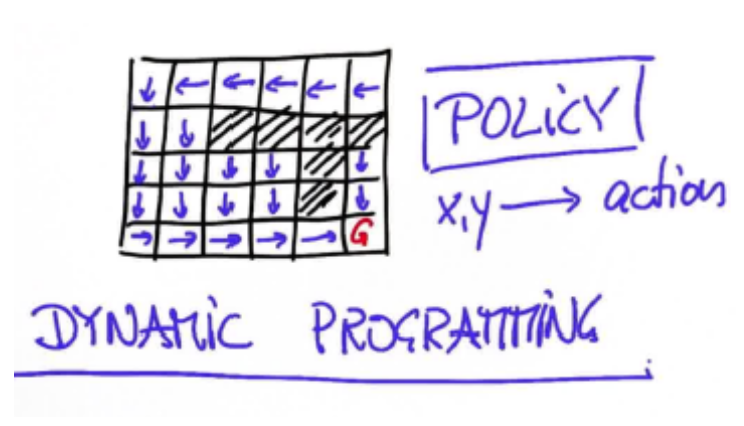 POLICY
x,y → action
G
DYNAMIC PROGRAMMING